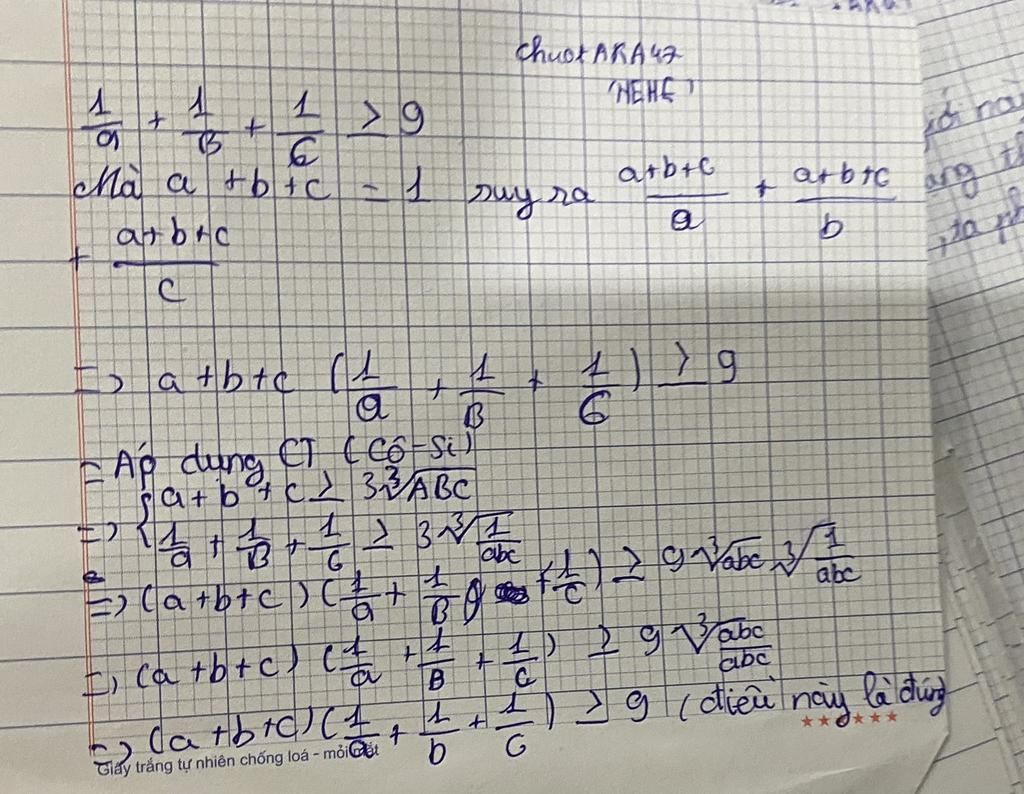 chuotAKA47
(HEHE)
1/a + 1/B + 1/C ≥ 9
Mà a + b + c = 1 suy ra (a+b+c)/a + (a+b+c)/b
+ (a+b+c)/c
=> a + b + c (1/a + 1/B + 1/C) ≥ 9
= Áp dụng CT (Cô-Si)
{ a + b + c ≥ 3∛ABC
=> { 1/a + 1/B + 1/C ≥ 3∛(1/abc)
=> (a+b+c) (1/a + 1/B + 1/C) ≥ 9∛abc ∛(1/abc)
=> (a+b+c) (1/a + 1/B + 1/C) ≥ 9∛(abc/abc)
=> (a+b+c) (1/a + 1/b + 1/C) ≥ 9 (điều này là đúng
Giấy trắng tự nhiên chống loá - mỏi mắt